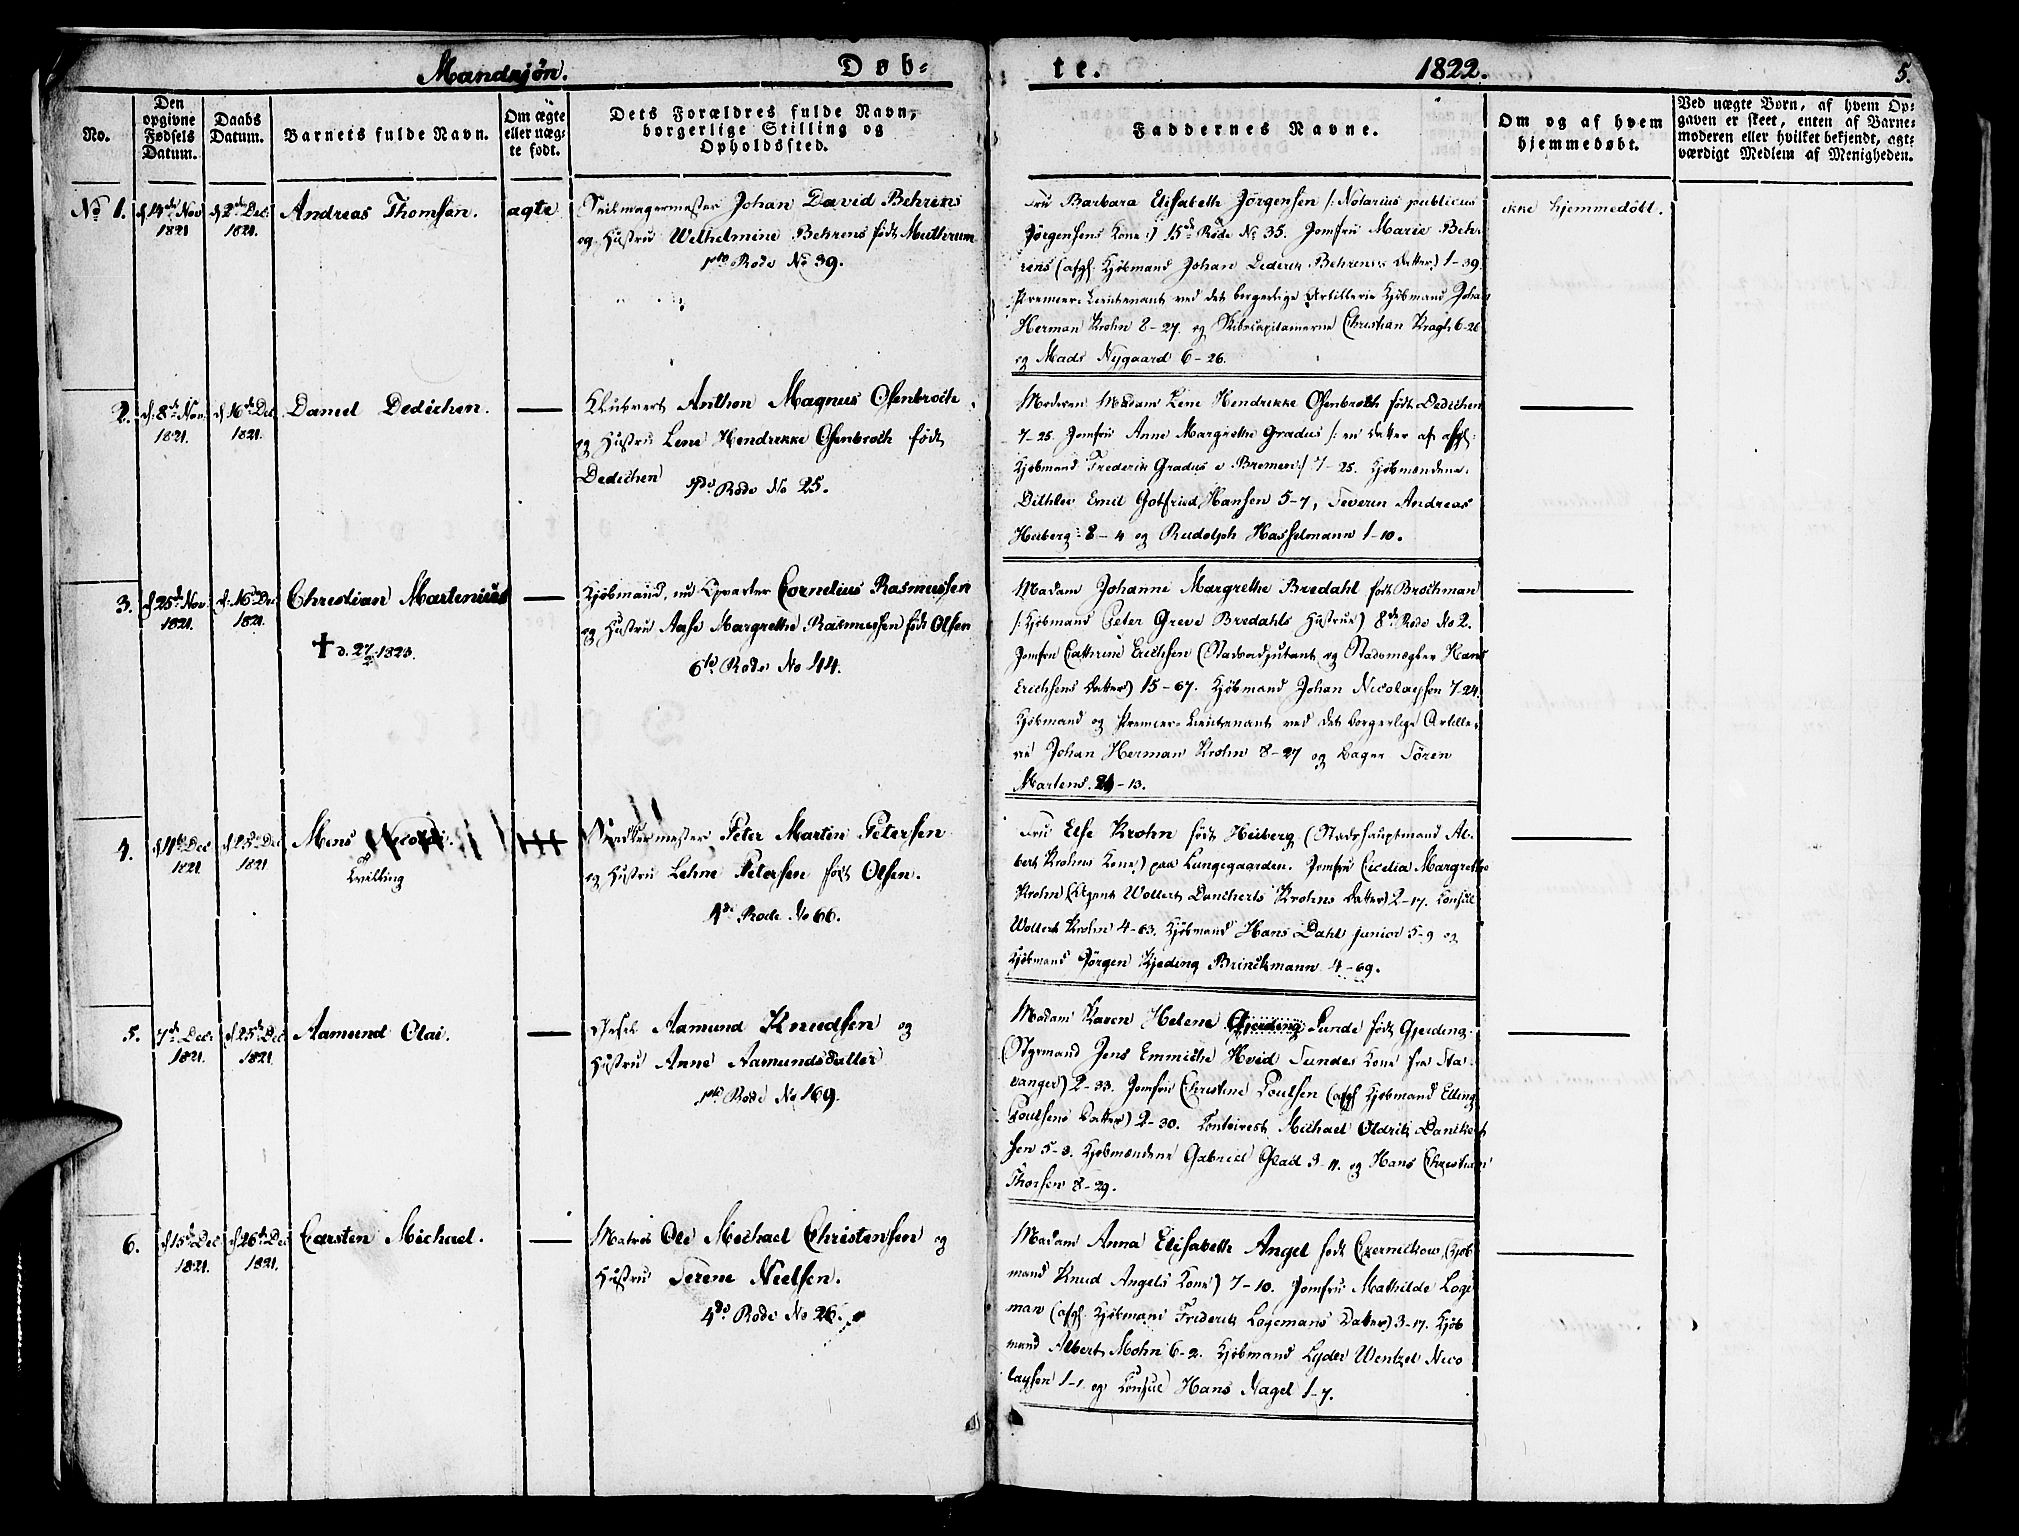 Mandkjøn. Døb=
te. 1822. 5.
No.
Den opgivne Fødsels Datum.
Daabs Datum.
Barnets fulde Navn.
Om ægte eller uæg- te født.
Dets Forældres fulde Navn, borgerlige Stilling og Opholdssted.
Faddernes Navne.
Om og af hvem hjemmedøbt.
Ved uægte Børn, af hvem Op- gaven er skeet, enten af Barne- moderen eller hvilket bekjendt, agt- værdigt Medlem af Menigheden.
No 1.
d 14de Nov 1821
d 2den Dec: 1821.
Andreas Thomsen.
ægte
Seilmagermester Johan David Behrens
og Hustru Wilhelmine Behrens født Muthrum
1ste Rode No 39.
Fru Barbara Elisabeth Jørgensen /: Notarius publicus
Jørgensens Kone :/ 15de Rode No 35. Jomfru Marie Beh-
rens (afgl. Kjøbmand Johan Dederik Behrenses Datter) 1-39.
Premier-Lieutenant ved det borgerlige Artillerie Kjøbmand Johan
Herman Krohn 8-27. og Skibscapitainerne Christian Kragh 6-26
og Mads Nygaard 6-26.
ikke hjemmedøbt.
2.
d: 8de Nov: 1821.
d 16de Dec 1821.
Daniel Dedichen.
Anthon Magnus Ofenbroch
og Hustru Lene Hendrikke Ofenbroch født
Dedichen
7de Rode No 25.
Moderen Madam Lene Hendrikke Ofenbroch født Dedichen
7-25. Jomfru Anne Margrethe Gradus /: en Datter af afgl:
Kjøbmand Frederik Gradus i Bremen:/ 7-25. Kjøbmændene
Dithlev Emil Gotfried Hansen 5-7, Severin Andreas
Heiberg 8-4 og Rudolph Hasselmann 1-10.
3.
d 25de Nov. 1821.
d. 16de Dec 1821.
Christian Martenius
✝ d. 27/2 1823.
Kjøbmand, nu Cornelius Rasmussen
og Hustru Aase Margrethe Rasmussen født Olsen
6te Rode No 44.
Madam Johanne Margrethe Bredahl født Brochman
/: Kjøbmand Peter Greve Bredahls Hustrue) 8de Rode No 2.
Jomfru Cathrine Erichsen (Stadsadjutant og Stadsmægler Hans
Erichsens Datter) 15-67. Kjøbmand Johan Nicolaysen 7-24.
Kjøbmand og Premier-Lieutenant ved det borgerlige Artille-
rie Johan Herman Krohn 8-27 og Bager Søren
Martens. 21-13.
4.
d 4de Dec 1821
d 25de Dec 1821.
Mons Nicolai.
Tvilling
Snedkermester Peter Martin Petersen
og Hustru Lehne Petersen født Olsen.
4de Rode No 66.
Fru Else Krohn født Heiberg (Stadshauptmand Al-
bert Krohns Kone) paa Lungegaarden. Jomfru Cicelia Margrethe
Krohn (Agent Wollert Danckerts Krohns Datter) 2-17. Consul
Wollert Krohn 4-63. Kjøbmand Hans Dahl junior 5-9 og
Kjøbmand Jørgen Kjeding Brinckmann 4-69.
5.
7de Dec: 1821.
d 25de Dec 1821.
Aamund Olai.
Aamund Knudsen og
Hustru Anne Aamundsdatter
1ste Rode No 169.
Madam Karen Helene Gjerding Sunde født Gjerding.
(Styrmand Jens Emmiche Hvid Sundes Kone fra Sta-
vanger) 2-33. Jomfru Christine Poulsen (afgl Kjøbmand Elling
Poulsens Datter) 2-30. Contoirist Michael Oldrik Danckert-
sen 5-8. Kjøbmændene Gabriel Glad 3-11. og Hans Christian
Thorsen 8-29.
6.
d 15de Dec 1821.
d 26de Dec 1821.
Carsten Michael.
Matros Ole Michael Christensen og
Hustru Serene Nielsen.
4de Rode No 26.
Madam Anna Elisabeth Angel født Czernickow (Kjøb
mand Knud Angels Kone) 7-10. Jomfru Mathilde Loge
man (afgl. Kjøbmand Friderik Logemans Datter) 3-17. Kjøb
mand Albert Mohn 6-2. Kjøbmand Lyder Wentzel Nico
laysen 1-1 og Consul Hans Nagel 1-7.